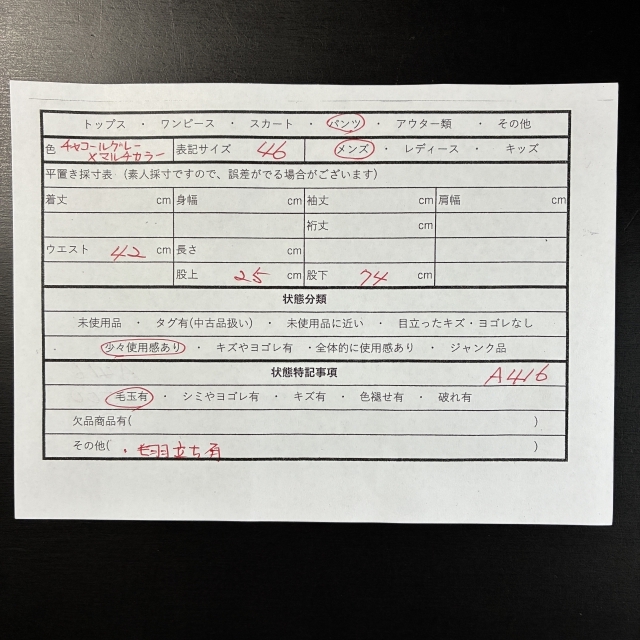 トップス ・ ワンピース ・ スカート ・ パンツ ・ アウター類 ・ その他
色 チャコールグレー
×マルチカラー 表記サイズ 46 メンズ ・ レディース ・ キッズ
平置き採寸表 （素人採寸ですので、誤差がでる場合がございます）
着丈 cm 身幅 cm 袖丈 cm 肩幅 cm
裄丈 cm
ウエスト 42 cm 長さ cm
股上 25 cm 股下 74 cm
状態分類
未使用品 ・ タグ有(中古品扱い) ・ 未使用品に近い ・ 目立ったキズ・ヨゴレなし
少々使用感あり ・ キズやヨゴレ有 ・全体的に使用感あり ・ ジャンク品
状態特記事項 A416
毛玉有 ・ シミやヨゴレ有 ・ キズ有 ・ 色褪せ有 ・ 破れ有
欠品商品有( )
その他( ・毛羽立ち有 )